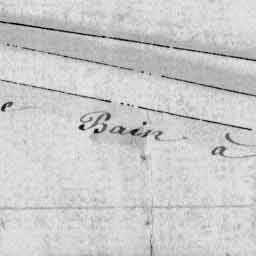 e Bain à